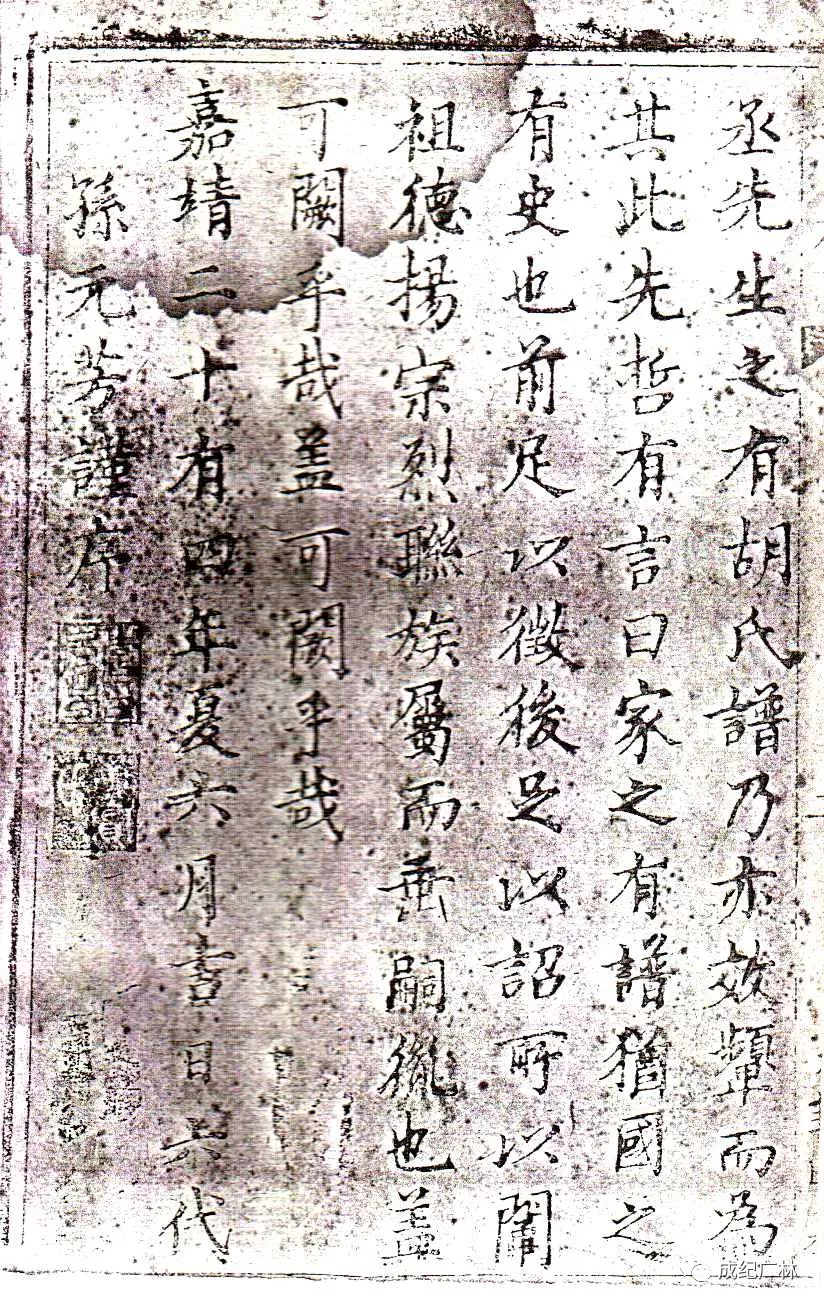 丞先生之有胡氏譜乃亦效顰而為
共此先哲有言曰家之有譜猶國之
有史也前足以徵後足以詔所以闡
祖德揚宗烈聯族屬而垂嗣胤也盖
可闕乎哉盖可闕乎哉
嘉靖二十有四年夏六月吉日六代
孫元芳謹序
成纪广林